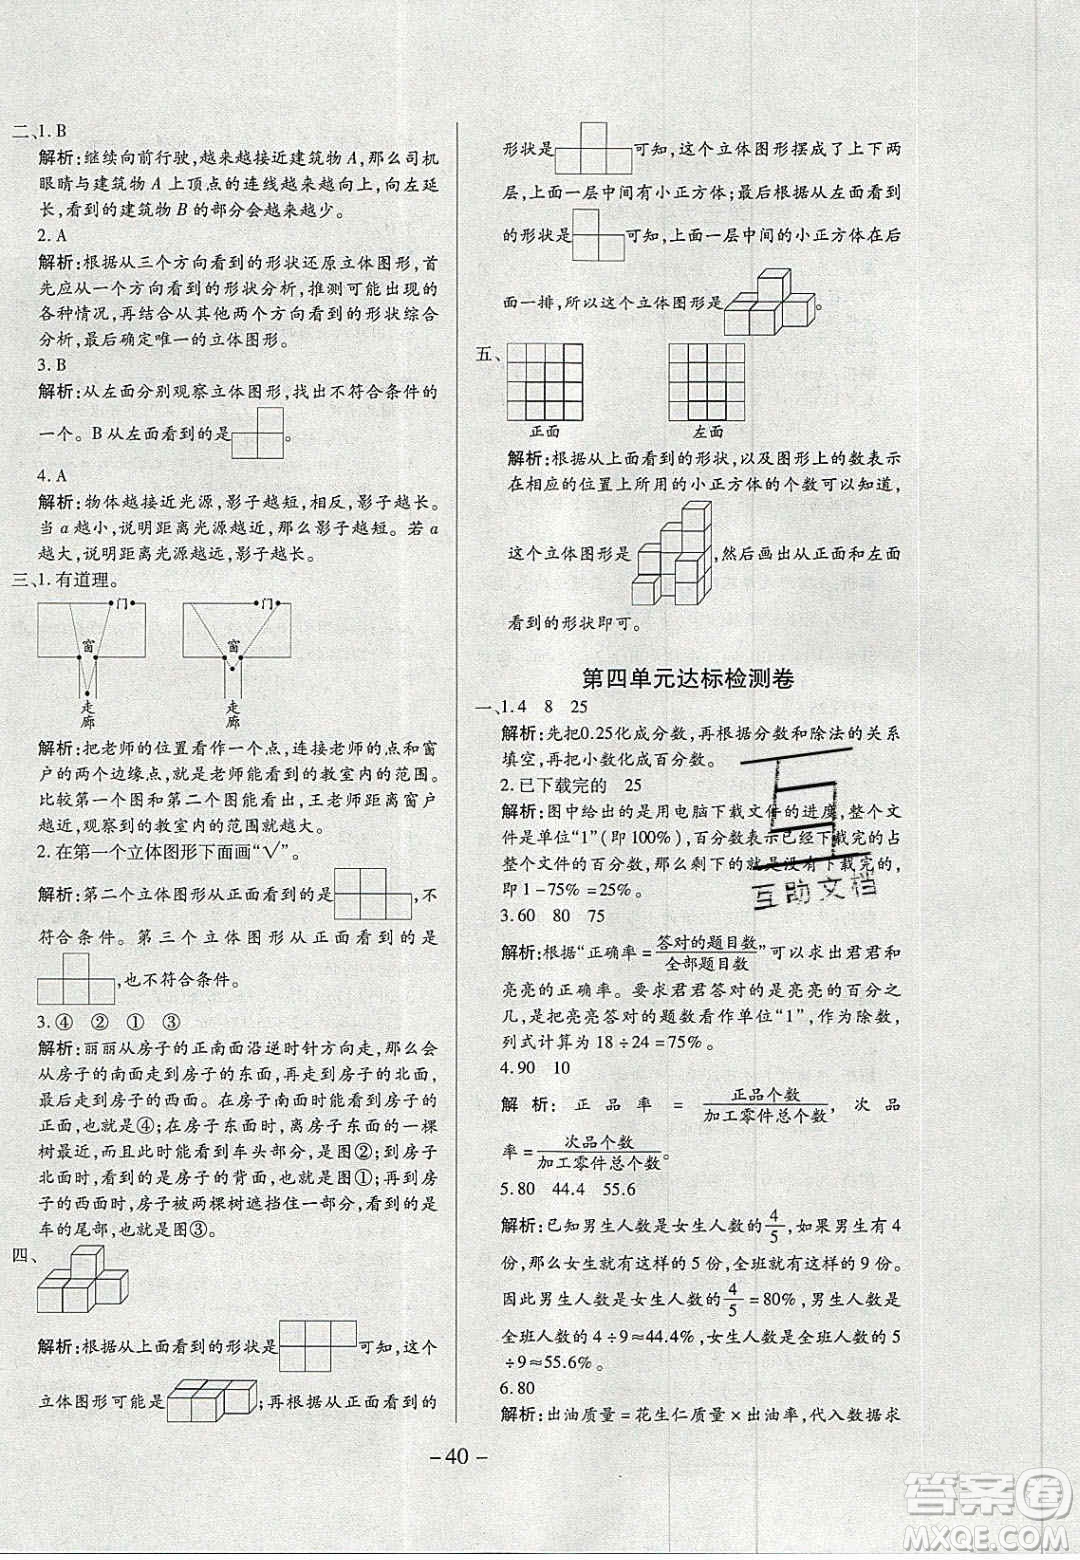 二、1. B
解析:继续向前行驶,越来越接近建筑物 A,那么司机
眼睛与建筑物 A 上顶点的连线越来越向上,向左延
长,看到的建筑物 B 的部分会越来越少。
2. A
解析:根据从三个方向看到的形状还原立体图形,首
先应从一个方向看到的形状分析,推测可能出现的
各种情况,再结合从其他两个方向看到的形状综合
分析,最后确定唯一的立体图形。
3. B
解析:从左面分别观察立体图形,找出不符合条件的
一个。B 从左面看到的是。
4. A
解析:物体越接近光源,影子越短,相反,影子越长。
当 a 越小,说明距离光源越近,那么影子越短。若 a
越大,说明距离光源越远,影子越长。
三、1. 有道理。
门 门
窗 窗
走廊 走廊
解析:把老师的位置看作一个点,连接老师的点和窗
户的两个边缘点,就是老师能看到的教室内的范围。
比较第一个图和第二个图能看出,王老师距离窗户
越近,观察到的教室内的范围就越大。
2. 在第一个立体图形下面画“√”。
解析:第二个立体图形从正面看到的是,不
符合条件。第三个立体图形从正面看到的是
,也不符合条件。
3. ④ ② ① ③
解析:丽丽从房子的正南面沿逆时针方向走,那么会
从房子的南面走到房子的东面,再走到房子的北面,
最后走到房子的西面。在房子南面时看到房子的
正面,也就是④;在房子东面时,离房子东面的一棵
树最近,而且此时能看到车头部分,是图②;到房子
北面时,看到的是房子的背面,应是图①;走到房子
的西面时,房子被两棵树遮挡住一部分,只能看到
车的尾部,也就是图③。
四、
解析:根据从上面看到的形状是可知,这个
立体图形可能是;再根据从正面看到的
形状是可知,这个立体图形摆成了上下两
层,上面一层中间有小正方体;最后根据从左面看到
的形状是可知,上面一层中间的小正方体在后
面一排,所以这个立体图形是。
五、
正面 左面
解析:根据从上面看到的形状,以及图形上的数表示
在相应的位置上所用的小正方体的个数可以知道,
这个立体图形是,然后画出从正面和左面
看到的形状即可。
第四单元达标检测卷
一、1. 4 8 25
解析:先把0.25化成分数,再根据分数和除法的关系
填空,再把小数化成百分数。
2. 已下载完的 25
解析:图中给出的是用电脑下载文件的进度,整个文
件是单位“1”(即 100%),百分数表示已经下载完的占
整个文件的百分数,那么剩下的就是没有下载完的,
即 1-75%=25%。
3. 60 80 75
解析:根据“正确率=答对的题目数/全部题目数”可以求出君君和
亮亮的正确率。要求君君答对的是亮亮的百分之
几,是把亮亮答对的题数看作单位“1”,作为除数,
列式计算为 18÷24=75%。
4. 90 10
解析:正品率=正品个数/加工零件总个数,次品
率=次品个数/加工零件总个数。
5. 80 44.4 55.6
解析:已知男生人数是女生人数的4/5,如果男生有 4
份,那么女生就可以看成有这样的 5 份,全班有这样的 9 份。
因此男生人数是女生人数的4/5=80%,男生人数是
全班人数的 4÷9≈44.4%,女生人数是全班人数的 5
÷9≈55.6%。
6. 80
解析:出油质量=花生仁质量×出油率,代入数据求
-40-
互助文档
答案圈
MXQE.COM